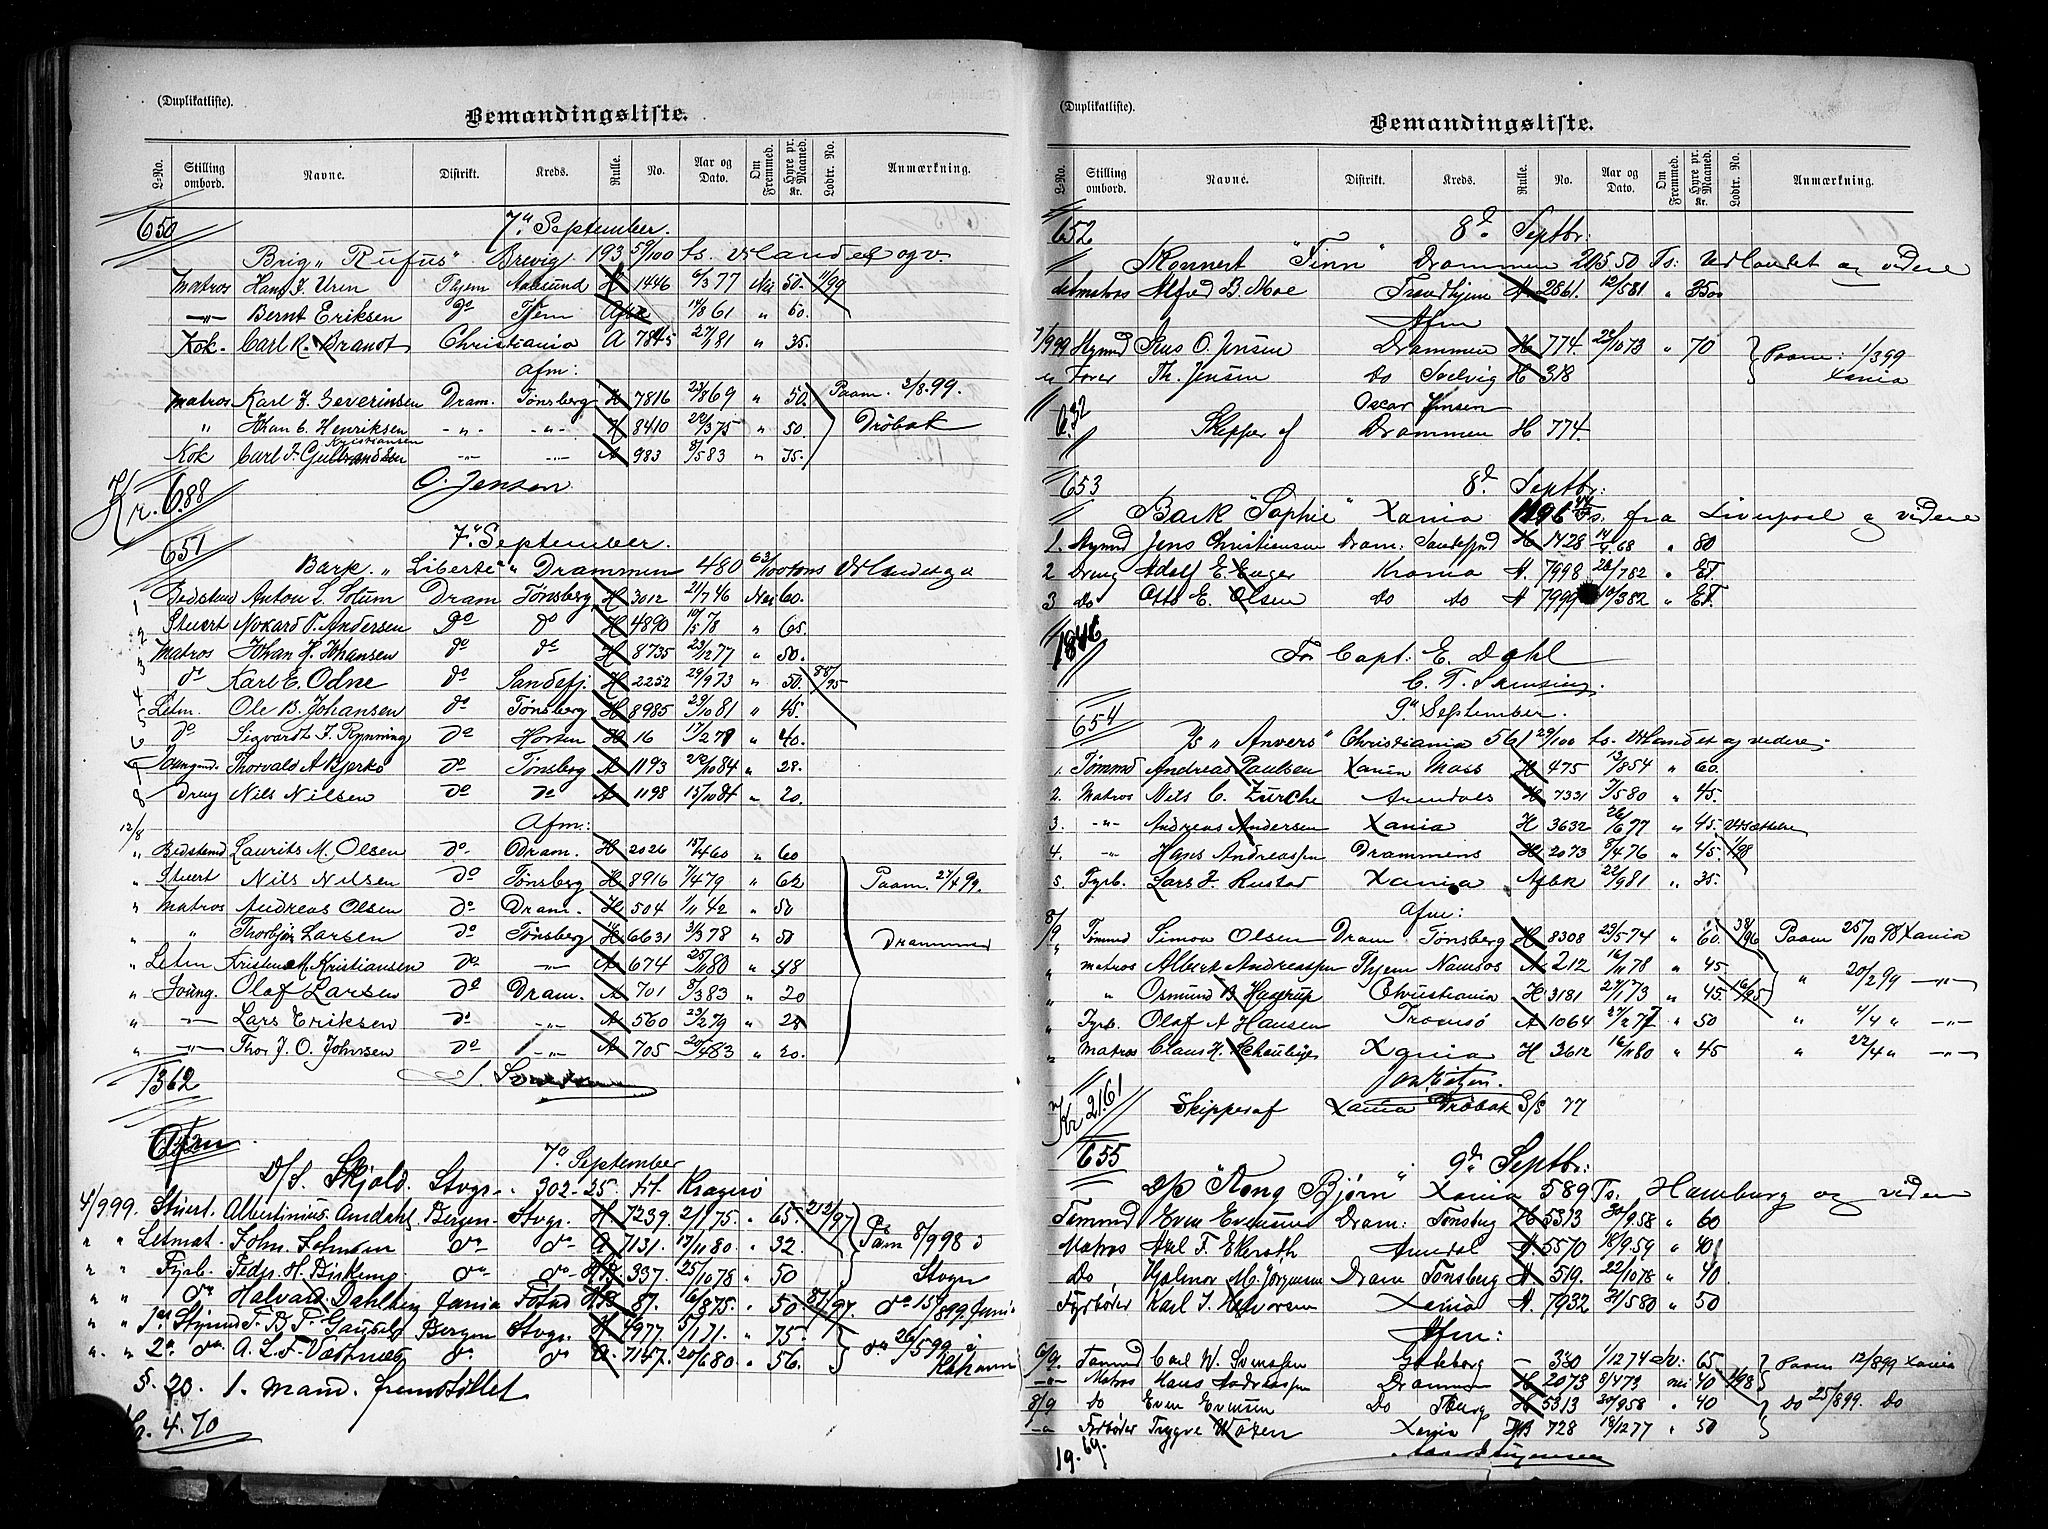 (Duplikatliste).
Bemandingsliste.
L-No. Stilling ombord. Navne. Distrikt. Kreds. Rulle. No. Aar og Dato. Om Fremmed. Hyre pr. Maaned. Kr. Lodtr. No. Anmærkning.
650 7de September.
Brig „Rufus" Brevig 193 59/100 ts. Udlandet og v.
Matros Hans J. Uren Thjem Aalesund H 1446 6/3 77 Nei 50. 11/99
—„— Bernt Eriksen do Tjem Afbk 14/8 61 „ 60.
Kok. Carl R. Brandt Christiania A 7845 27/1 81 „ 35.
Afm:
Matros Karl J. Severinsen Dram. Tønsberg H 7816 23/8 69 „ 50. Paam. 3/8.99.
„ Johan C. Henriksen -„- -„- H 8410 22/3 75 „ 50. Drøbak
Kok Carl F. Gulbrandsen Kristiansen -„- -„- A 983 8/5 83 „ 35.
O. Jensen
Kr. 6.88
651 7de September.
Bark. „Liberté" Drammen 480 63/100 tons Udlandet o v
1 Bedstmd Anton L. Solum Dram Tønsberg H 3012 21/7 46 Nei 60.
2 Stuert Nokard T. Andersen do do H 4890 10/5 78 „ 65.
3 Matros Johan H. Johansen do do H 8735 23/12 77 „ 50.
4 do Karl E. Odne do Sandefj. H 2252 29/9 73 „ 50. 88/95
5 Letm. Ole B. Johansen do Tønsberg H 8985 29/10 81 „ 45.
6 do Sigvardt F. Rynning do Horten H 16 17/2 78 „ 40.
7 Jungmd. Thorvald A Bjerkø do Tønsberg A 1193 22/10 84 „ 28.
8 Dreng Nils Nilsen do do A 1198 15/10 84 „ 20.
Afm:
12/8
„ Bedstemd Laurits M. Olsen do Dram. H 2026 18/4 60 „ 60
„ Stuert Nils Nilsen do Tønsberg H 8916 7/4 79 „ 62 Paam. 27/4 99.
„ Matros Andreas Olsen do Dram. H 504 1/11 42 „ 50
„ „ Thorbjørn Larsen do Tønsberg H 6631 31/3 78 „ 50 Drammen
„ Letm Kristen M. Kristiansen do -„- A 674 25/11 80 „ 48
„ Joung. Olaf Larsen do Dram. A 701 8/3 83 „ 20
„ —„— Lars Eriksen do -„- A 560 23/2 79 „ 28
„ —„— Thor J. O. Johnsen do -„- A 705 20/4 83 „ 20.
1362
Afm
7de September
D/S. Skjold. Stvgr. 302-25. trt. Kragerø
4/9 99. Stuert. Albertinius Amdahl Bergen Stvgr. H. 7239 2/1 75. „ 65. 212/97
„ „ Letmat. John. Johnsen do do A 7131. 13/11 80 „ 32. Paam 8/9 98 i
„ „ Fyrb. Peder H. Birkemo, do do 337. 25/10 78 „ 50 Stvgr
„ „ do Halvard Dahlberg Xania Fstnd 87. 16/8 75. „ 50 do 15/8 99 Xania
„ „ 1ste Styrmd F. B. F. Bergen Stvgr. H 4977. 5/1 71. „ 75. do 26/5 99 i
„ „ 2. do. A. L. F. do do A. 7147. 20/6 80. „ 56.
§. 20. 1. mand. fremstillet
4.70
(Duplikatliste).
Bemandingsliste.
L-No. Stilling ombord. Navne. Distrikt. Kreds. Rulle. No. Aar og Dato. Om Fremmed. Hyre pr. Maaned. Kr. Lodtr. No. Anmærkning.
652 8de Septbr:
Skonnert "Finn" Drammen Ts: Udlandet og videre
Letmatros Alfred B. Moe Trondhjem A 2861. 12/5 81 „ 3500
Afm
7/9 99 Styrmd Jens O. Jensen Drammen H 774. 23/10 73 „ 70 Paam: 1/3 99
Fører Th. Jensen Do Svelvig H 318 Xania
Oscar Jensen
6.32 Skipper af Drammen H 774.
653 8de Septbr:
Bark "Sophie" Xania 1196 Ts. fra Liverpool og videre
1. Styrmd Jens Christiansen Dram: Sandefjord H 1428 14/4 68 „ 80
2 Dreng Adolf E. Enger Krania A. 7998 28/7 82 „ Et
3 Do Otto E. Olsen Do do A 7999 10/3 82 „ Et.
1846
For Capt: E. Dahl
9de September.
654 D/S „Anvers" Christiania 561 29/100 ts. Udlandet og videre.
1. Tømmd Andreas Paulsen Xania Moss H 475 13/8 54 „ 60.
2. Matros Nils C. Zürche Arendals H 7321 3/5 80 „ 45.
3. -„- Andreas Andersen Xania H 3632 26/6 77 „ 45. Udsættelse
4. -„- Hans Andreassen Drammens H 2073 8/4 76 „ 45. 1/98
5. Fyrb. Lars J. Rustad Xania Afbk 22/9 81 „ 35.
Afm:
8/9 Tømmd Simon Olsen Dram Tønsberg H 8308 23/5 74 „ 60. 38/96 Paam 25/10 98 Xania
„ Matros Albert Andreassen Thjem Namsos A 212 16/11 78 „ 45. „ 20/2 99 -„-
„ „ Osmund B. Hagerup Christiania H 3181 27/1 73 „ 45. 16/95
„ Fyrb. Olaf A Hansen Tromsø A 1064 27/2 77 „ 50 „ 4/4 „ -„-
„ Matros Claus H. Xania H 3612 16/11 80 „ 45 „ 22/4 „ -„-
Kr 21.61 Skipper af Xania Drøbak S/S 77
655 9de Septbr:
D/S "Kong Bjørn" Xania 589 Ts: Hamburg og videre
Tømmd Even Evensen Dram: Tønsberg H 5313 30/9.58 „ 60
Matros Axel F. Ekeroth Arendal A 5570 18/9.59 „ 40
Do Hjalmar M. Jørgensen Dram Tønsberg A 519. 22/10 78 „ 40.
Fyrbøder Karl I. Halvorsen Xania A. 7932 31/5 80 „ 50
Afm:
6/9 Tømmd Carl W. Svensson Göteborg — 330 1/12 74 65 Paam 12/8 99 Xania
-„- Matros Hans Andreassen Drammen H 2073 8/4 73 nei 40 1/98
8/9 Do Even Evensen Do Tberg H 5313 30/9 58 „ 40 Do 25/8 99. Do
Fyrbøder Trygve Wozen Xania 728 18/12 77 „ 50
19.69.